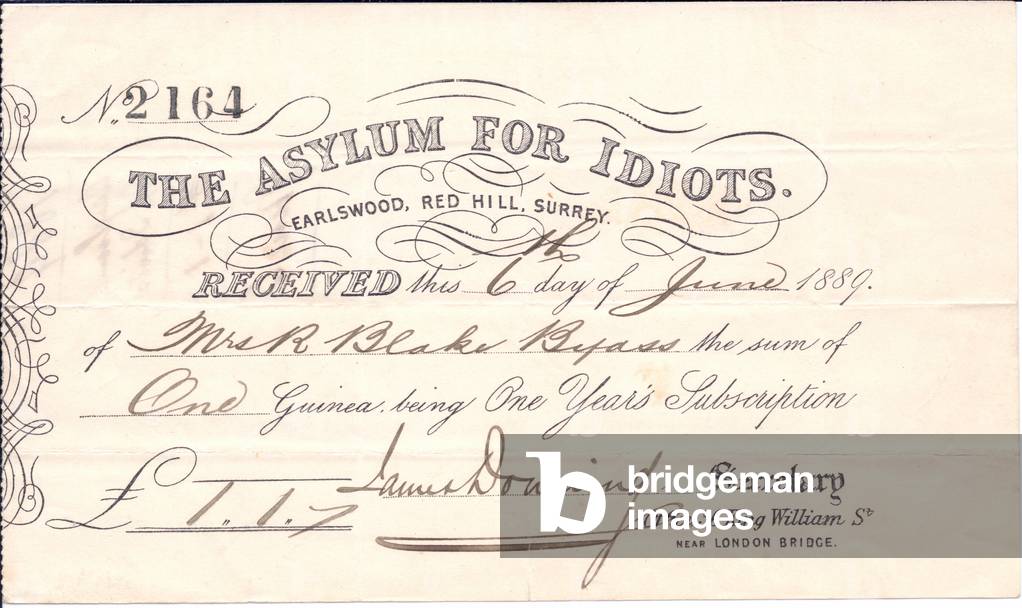 No. 2164
THE ASYLUM FOR IDIOTS.
EARLSWOOD, RED HILL, SURREY.
RECEIVED this 6th day of June 1889.
of Mrs R Blake Byass the sum of
One Guinea. being One Year's Subscription
£ 1. 1. -
James Downing Secretary
King William St
NEAR LONDON BRIDGE.
bridgeman
images